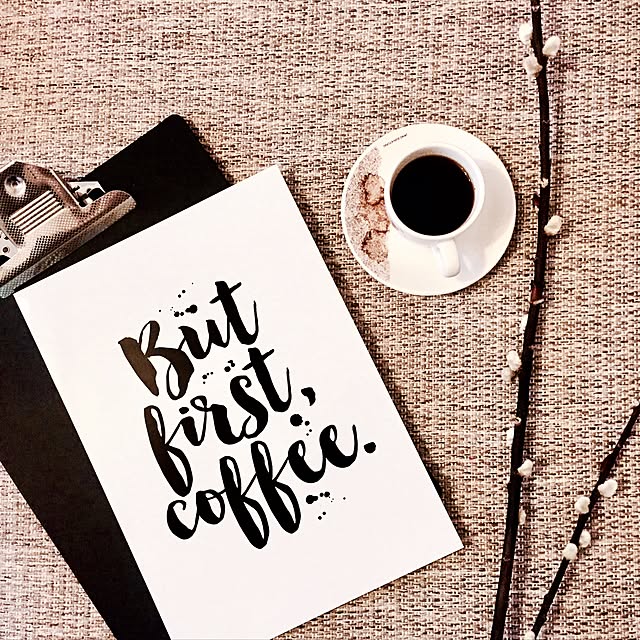 But
first,
coffee.